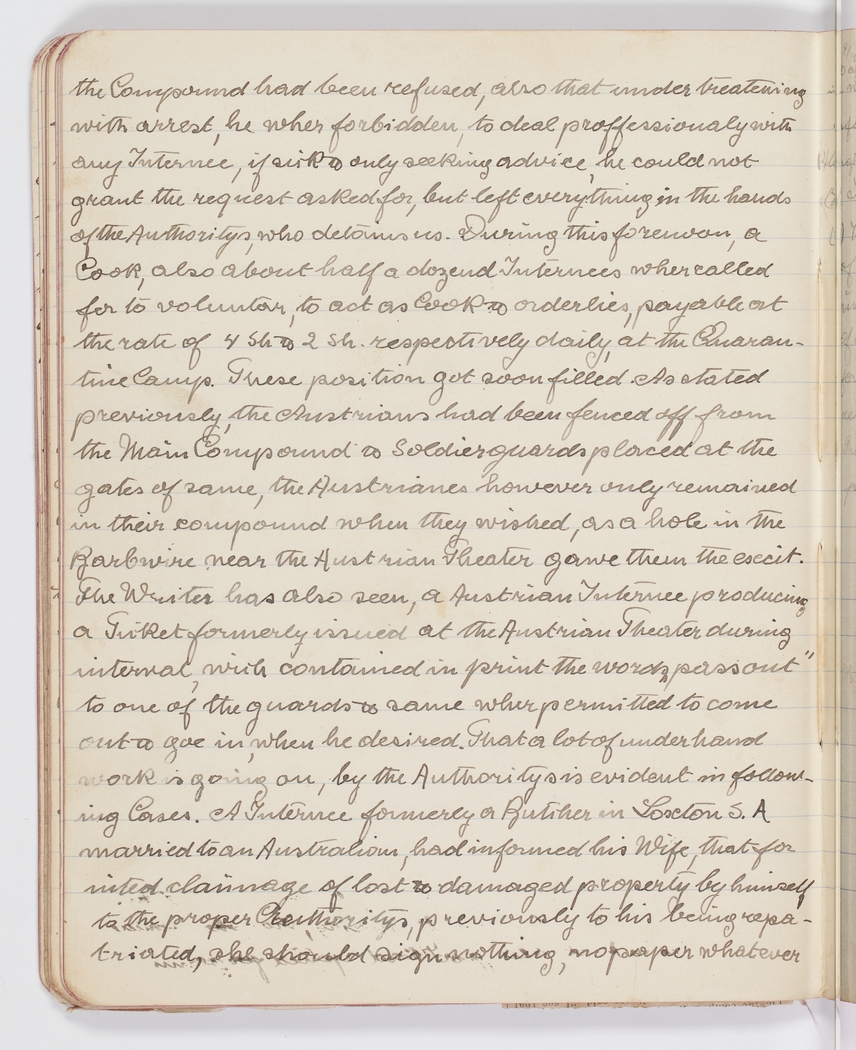 the Compound had been refused, also that under treatening
with arrest, he wher forbidden, to deal proffessionaly with
any Internee, if sick & only seeking advice, he could not
grant the request asked for, but left everything in the hands
of the Authoritys, who detains us. During this forenoon, a
Cook, also about half a dozend Internees wher called
for to voluntar, to act as Cook & orderlies, payable at
the rate of 4 Sh & 2 Sh. respectively daily, at the Quaran-
tine Camp. These position got soon filled. As stated
previously, the Austrians had been fenced off from
the Main Compound & Soldier guards placed at the
gates of same, the Austrianes however only remained
in their compound when they wished, as a hole in the
Barbwire near the Austrian Theater gawe them the esecit.
The Writer has also seen, a Austrian Internee producing
a Ticket formerly issued at the Austrian Theater during
interval, wich contained in print the words „pass out"
to one of the guards & same wher permitted to come
out & goe in, when he desired. That a lot of underhand
work is going on, by the Authoritys is evident in follow-
ing Cases. A Internee formerly a Butcher in Loxton S. A
married to an Australian, had informed his Wife, that for
inted claimage of lost & damaged property by himself
to the proper Authoritys, previously to his being repa-
triated, she should sign nothing, no paper whatever